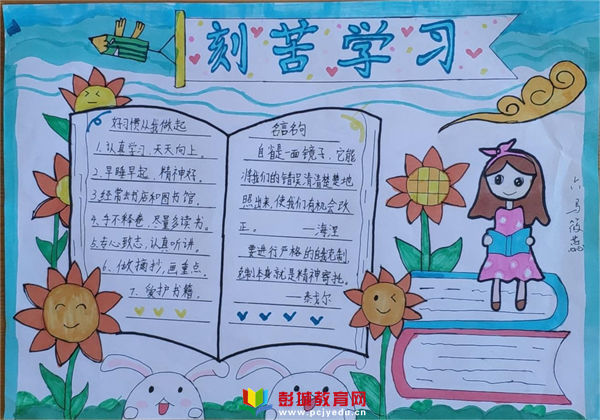 刻苦学习
好习惯从我做起
1.认真学习、天天向上。
2.早睡早起、精神好。
3.经常去书店和图书馆。
4.手不释卷、尽量多读书。
5.专心致志、认真听讲。
6、做摘抄,画重点。
7、爱护书籍。
名言名句
自省是一面镜子,它能
将我们的错误清清楚楚地
照出来,使我们有机会改
正。 —海涅
要进行严格的自我克制,
克制本身就是精神寄托。
—泰戈尔
六
马筱蕊
彭城教育网
www.pcjyedu.cn